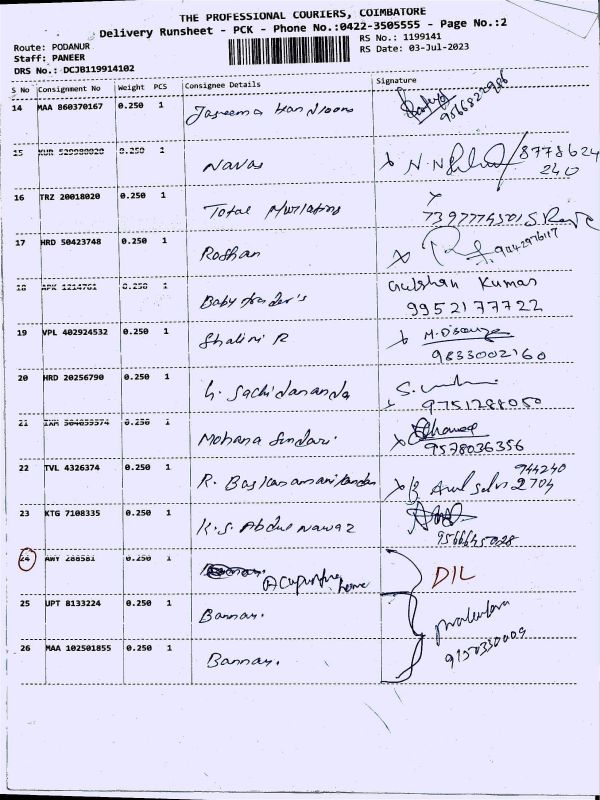 THE PROFESSIONAL COURIERS, COIMBATORE
Delivery Runsheet - PCK - Phone No.:0422-3505555 - Page No.:2
Route: PODANUR
RS No.: 1199141
Staff: PANEER
RS Date: 03-Jul-2023
DRS No.: DCJB119914102
S No Consignment No Weight PCS Consignee Details Signature
14 MAA 860370167 0.250 1 Jaseema Handlooms
9566822986
15 0.250 1 Navas x 8778624
240
16 TRZ 20018020 0.250 1 Total
7397774501
17 HRD 50423748 0.250 1 Roshan x 9442976117
18 APK 1214761 0.250 1 Baby trader's Gulshan Kumar
9952177722
19 VPL 402924532 0.250 1 Shalini R
9833002160
20 HRD 20256790 0.250 1 G. Sachidananda
9751288050
21 0.250 1 Mohana Sundari. x
9578036356
22 TVL 4326374 0.250 1 R. x 944240
2704
23 KTG 7108335 0.250 1 K.S. Abdul Nawaz
24 AWY 288581 0.250 1 home DIL
25 UPT 8133224 0.250 1 Bannari.
9150330009
26 MAA 102501855 0.250 1 Bannari.